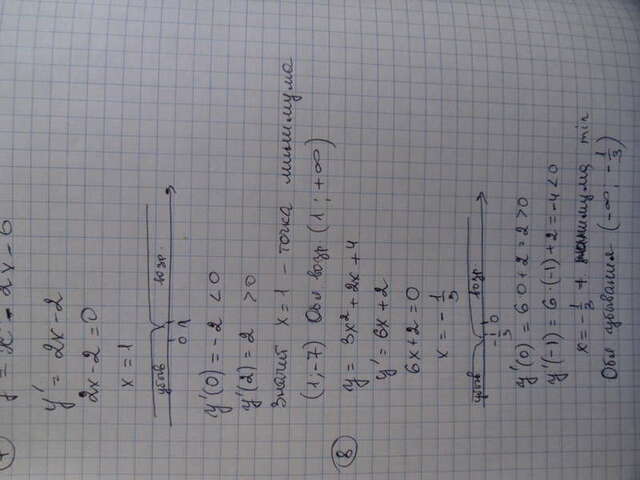 7 y = x² - 2x - 6
y' = 2x - 2
2x - 2 = 0
x = 1
убыв возр.
0 1
y'(0) = -2 < 0
y'(2) = 2 > 0
Значит x = 1 - точка минимума
(1; -7) Обл возр (1; +∞)
8 y = 3x² + 2x + 4
y' = 6x + 2
6x + 2 = 0
x = -1/3
убыв возр
-1/3 0
y'(0) = 6·0 + 2 = 2 > 0
y'(-1) = 6·(-1) + 2 = -4 < 0
x = -1/3 т. min
Обл убывания (-∞; -1/3)